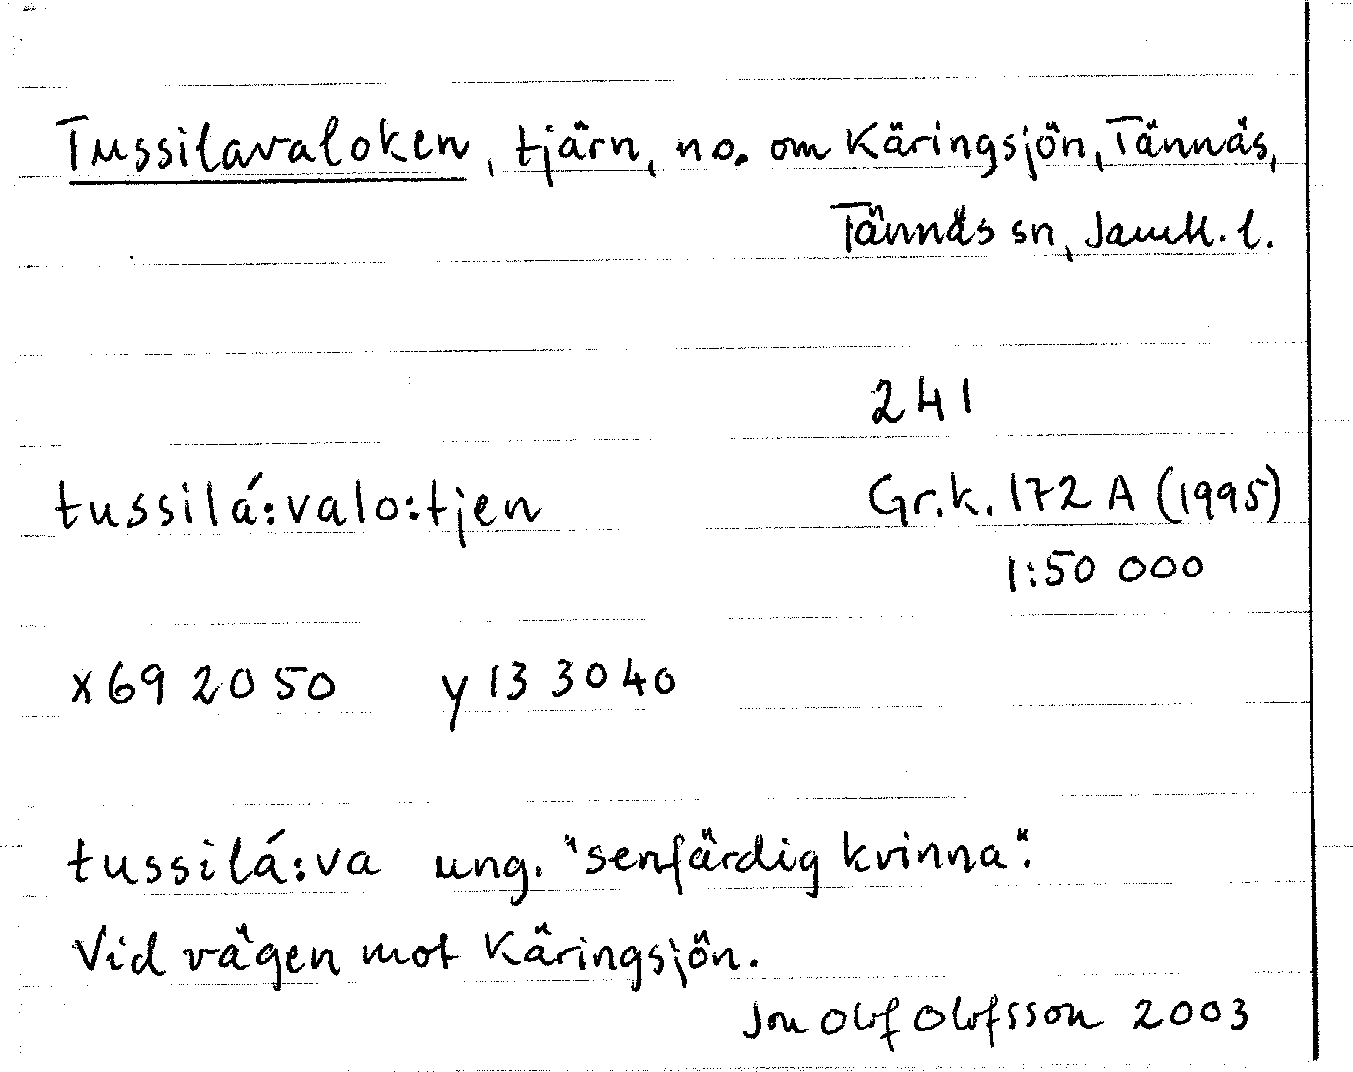 Tussilavaloken, tjärn, no. om Käringsjön, Tännäs,
Tännäs sn, Jämtl. l.
241
tussilá:valo:tjen Gr.k. 172 A (1995)
1:50 000
x69 2050 y 13 3040
tussilá:va ung. "senfärdig kvinna".
Vid vägen mot Käringsjön.
Jon Olof Olofsson 2003